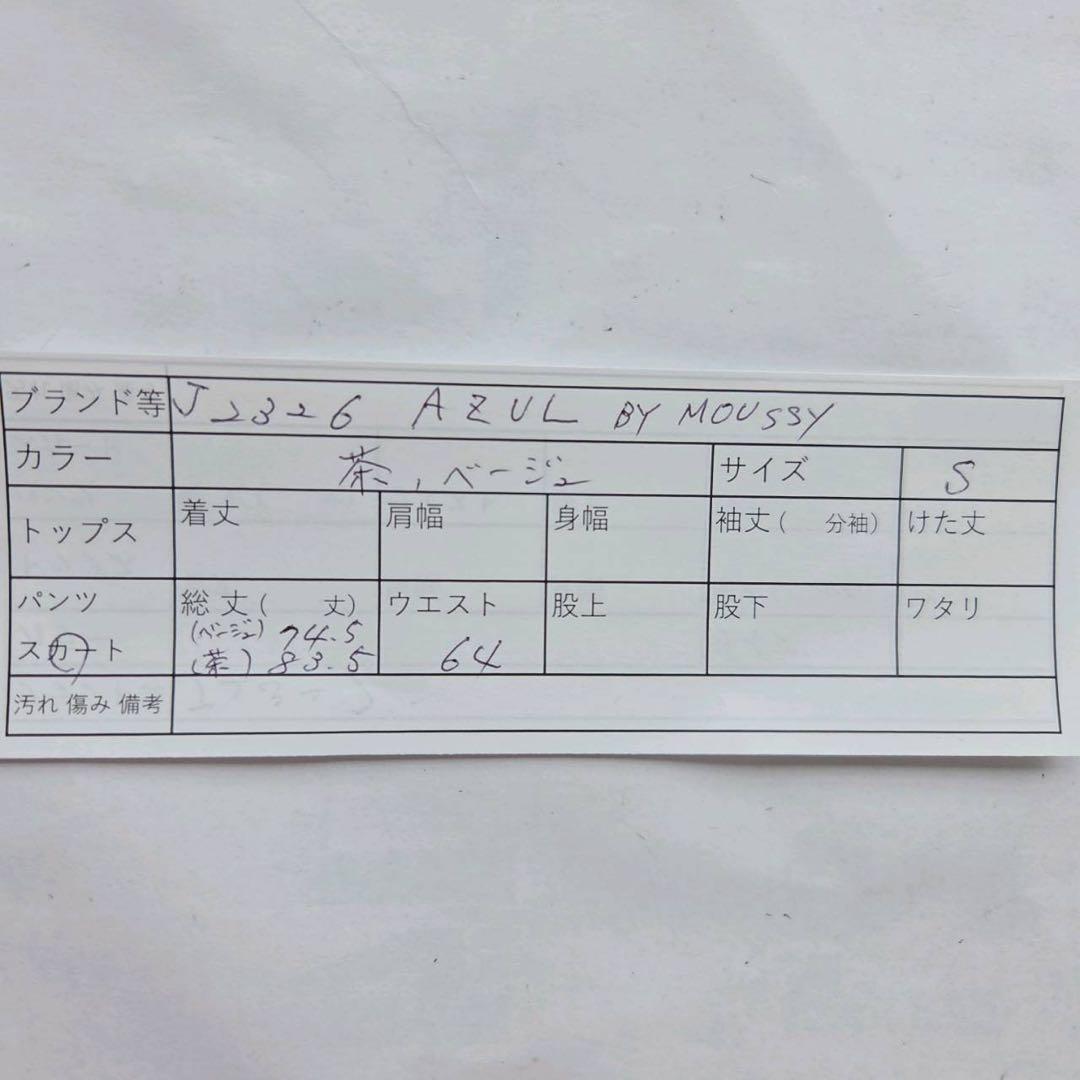 ブランド等 J2326 AZUL BY MOUSSY
カラー 茶,ベージュ サイズ S
トップス 着丈 肩幅 身幅 袖丈( 分袖) けた丈
パンツ 総丈( 丈) ウエスト 股上 股下 ワタリ
(ベージュ) 74.5
スカート (茶) 83.5 64
汚れ 傷み 備考